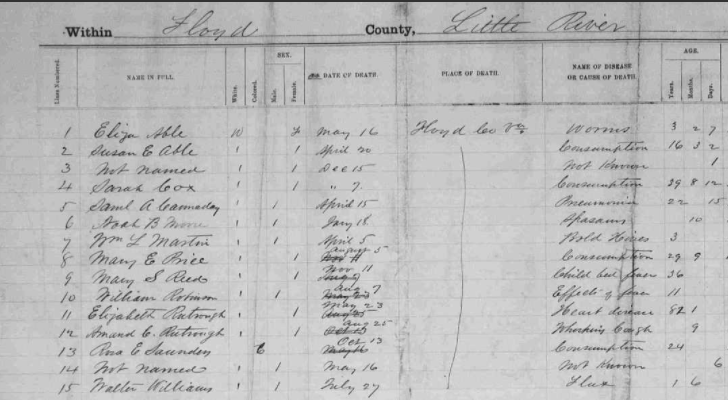 Within Floyd County, Little River
Lines Numbered. NAME IN FULL. White. Colored. SEX. Male. Female. DATE OF DEATH. PLACE OF DEATH. NAME OF DISEASE OR CAUSE OF DEATH. AGE. Years. Months. Days.
1 Eliza Able W F May 16 Floyd Co Va Worms 3 2 7
2 Susan E Able " 1 April 20 Consumption 16 3 2
3 Not named " 1 Dec 15 Not Known 1
4 Sarah Cox " 1 " 7 Consumption 29 8 12
5 Saml A Cannaday " 1 April 15 Pneumonia 22 15
6 Noah B Moore " 1 Jany 18 Spasams 10
7 Wm L Martin " 1 April 5 Bold Hives 3
8 Mary E Price " 1 August 5 Consumption 29 9
9 Mary S Reed " 1 Nov 11 Child bed fever 36
10 William Robinson " 1 Aug 7 Effects of fever 11
11 Elizabeth Rutrough " 1 May 23 Heart disease 82 1
12 Amand C. Rutrough " 1 Aug 25 Whooping Cough 9
13 E Saunders C Oct 13 Consumption 24
14 Not named " 1 May 16 Not Known 6
15 Walter Williams " 1 July 27 Flux 1 6